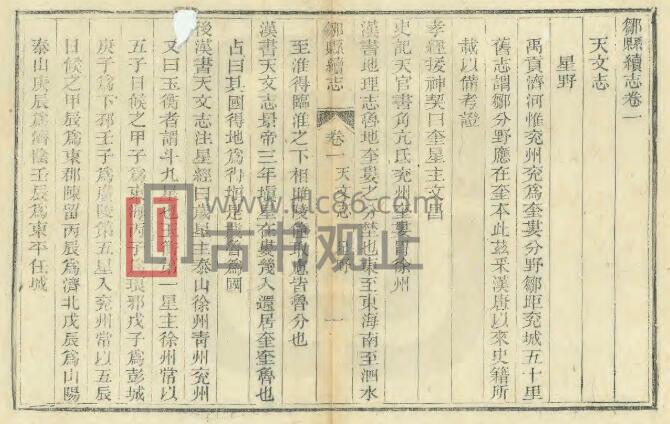 鄒縣續志卷一
天文志
星野
禹貢濟河惟兖州兖爲奎婁分野鄒距兖城五十里
舊志謂鄒分野應在奎本此茲釆漢唐以來史籍所
載以備考證
孝經援神契曰奎星主文昌
史記天官書角亢氐兖州奎婁胃徐州
漢書地理志魯地奎婁之分壄也東至東海南至泗水
鄒縣續志 卷一 天文志 星野 一
至淮得臨淮之下相睢陵僮取慮皆魯分也
漢書天文志景帝三年塡星在婁幾入還居奎奎魯也
占曰其國得地爲得塡是歲魯爲國
後漢書天文志注星經曰歲星主泰山徐州青州兖州
又曰玉衡者謂斗九星也玉衡第一星主徐州常以
五子日候之甲子爲東海丙子爲琅邪戊子爲彭城
庚子爲下邳壬子爲廣陵第五星入兖州常以五辰
日候之甲辰爲東郡陳留丙辰爲濟北戊辰爲山陽
泰山庚辰爲濟陰壬辰爲東平任城
古书观止